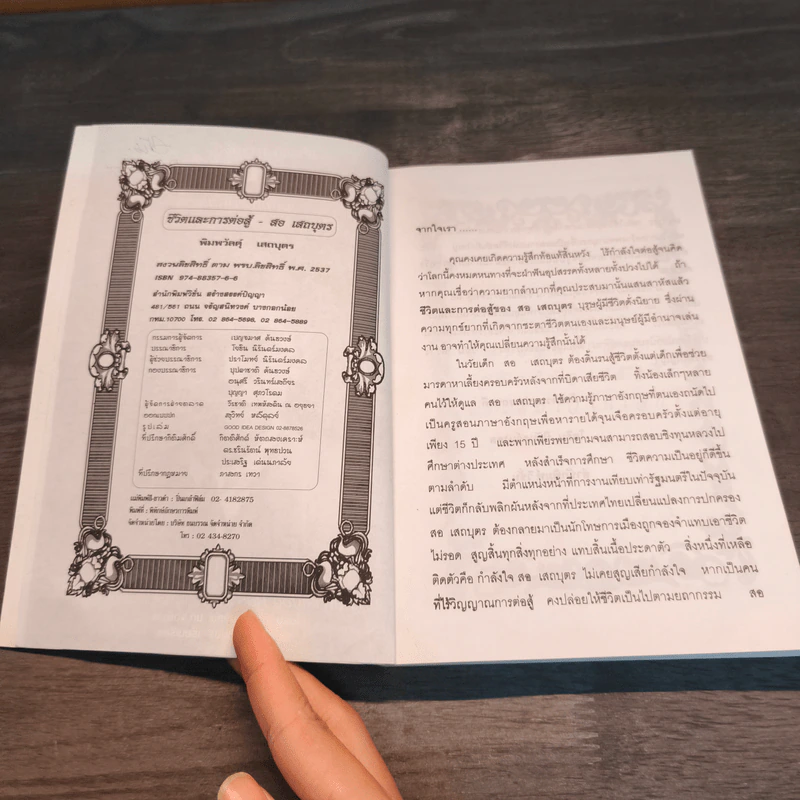 ชีวิตและการต่อสู้ - สอ เสถบุตร
พิมพวัลคุ์ เสถบุตร
สงวนลิขสิทธิ์ ตาม พรบ.ลิขสิทธิ์ พ.ศ. 2537
ISBN 974-88357-6-6
สำนักพิมพ์วิชั่น สร้างสรรค์ปัญญา
461/361 ถนน จรัญสนิทวงศ์ บางกอกน้อย
กทม.10700 โทร. 02 864-5898, 02 864-5889
กรรมการผู้จัดการ เบญจมาศ
บรรณาธิการ โรจัน นิรันดร์มงคล
ผู้ช่วยบรรณาธิการ ปราโมทย์ นิรันดร์มงคล
กองบรรณาธิการ
บุญญา
ผู้จัดการฝ่ายตลาด
ออกแบบปก สุวิทย์
รูปเล่ม GOOD IDEA DESIGN 02-8878026
ที่ปรึกษากิตติมศักดิ์
ที่ปรึกษากฎหมาย
แม่พิมพ์สี-ขาวดำ : รีนเกล้าฟิล์ม 02- 4182875
พิมพ์ที่ : พิทักษ์อักษรการพิมพ์
จัดจำหน่ายโดย : บริษัท ธนบรรณ จัดจำหน่าย จำกัด
โทร : 02 434-8270
จากใจเรา ......
คุณคงเคยเกิดความรู้สึกท้อแท้สิ้นหวัง ไร้กำลังใจต่อสู้จนคิด
ว่าโลกนี้คงหมดหนทางที่จะฝ่าฟันอุปสรรคทั้งหลายทั้งปวงไปได้ ถ้า
หากคุณเชื่อว่าความยากลำบากที่คุณประสบมานั้นแสนสาหัสแล้ว
ชีวิตและการต่อสู้ของ สอ เสถบุตร บุรุษผู้มีชีวิตดังนิยาย ซึ่งผ่าน
ความทุกข์ยากที่เกิดจากชะตาชีวิตตนเองและมนุษย์ผู้มีอำนาจเล่น
งาน อาจทำให้คุณเปลี่ยนความรู้สึกนั้นได้
ในวัยเด็ก สอ เสถบุตร ต้องดิ้นรนสู้ชีวิตตั้งแต่เด็กเพื่อช่วย
มารดาหาเลี้ยงครอบครัวหลังจากที่บิดาเสียชีวิต ทิ้งน้องเล็กๆหลาย
คนไว้ให้ดูแล สอ เสถบุตร ใช้ความรู้ภาษาอังกฤษที่ตนเองถนัดไป
เป็นครูสอนภาษาอังกฤษเพื่อหารายได้จุนเจือครอบครัวตั้งแต่อายุ
เพียง 15 ปี และพากเพียรพยายามจนสามารถสอบชิงทุนหลวงไป
ศึกษาต่างประเทศ หลังสำเร็จการศึกษา ชีวิตความเป็นอยู่ก็ดีขึ้น
ตามลำดับ มีตำแหน่งหน้าที่การงานเทียบเท่ารัฐมนตรีในปัจจุบัน
แต่ชีวิตก็กลับพลิกผันหลังจากที่ประเทศไทยเปลี่ยนแปลงการปกครอง
สอ เสถบุตร ต้องกลายมาเป็นนักโทษการเมืองถูกจองจำแทบเอาชีวิต
ไม่รอด สูญสิ้นทุกสิ่งทุกอย่าง แทบสิ้นเนื้อประดาตัว สิ่งหนึ่งที่เหลือ
ติดตัวคือ กำลังใจ สอ เสถบุตร ไม่เคยสูญเสียกำลังใจ หากเป็นคน
ที่ไร้วิญญาณการต่อสู้ คงปล่อยให้ชีวิตเป็นไปตามยถากรรม สอ